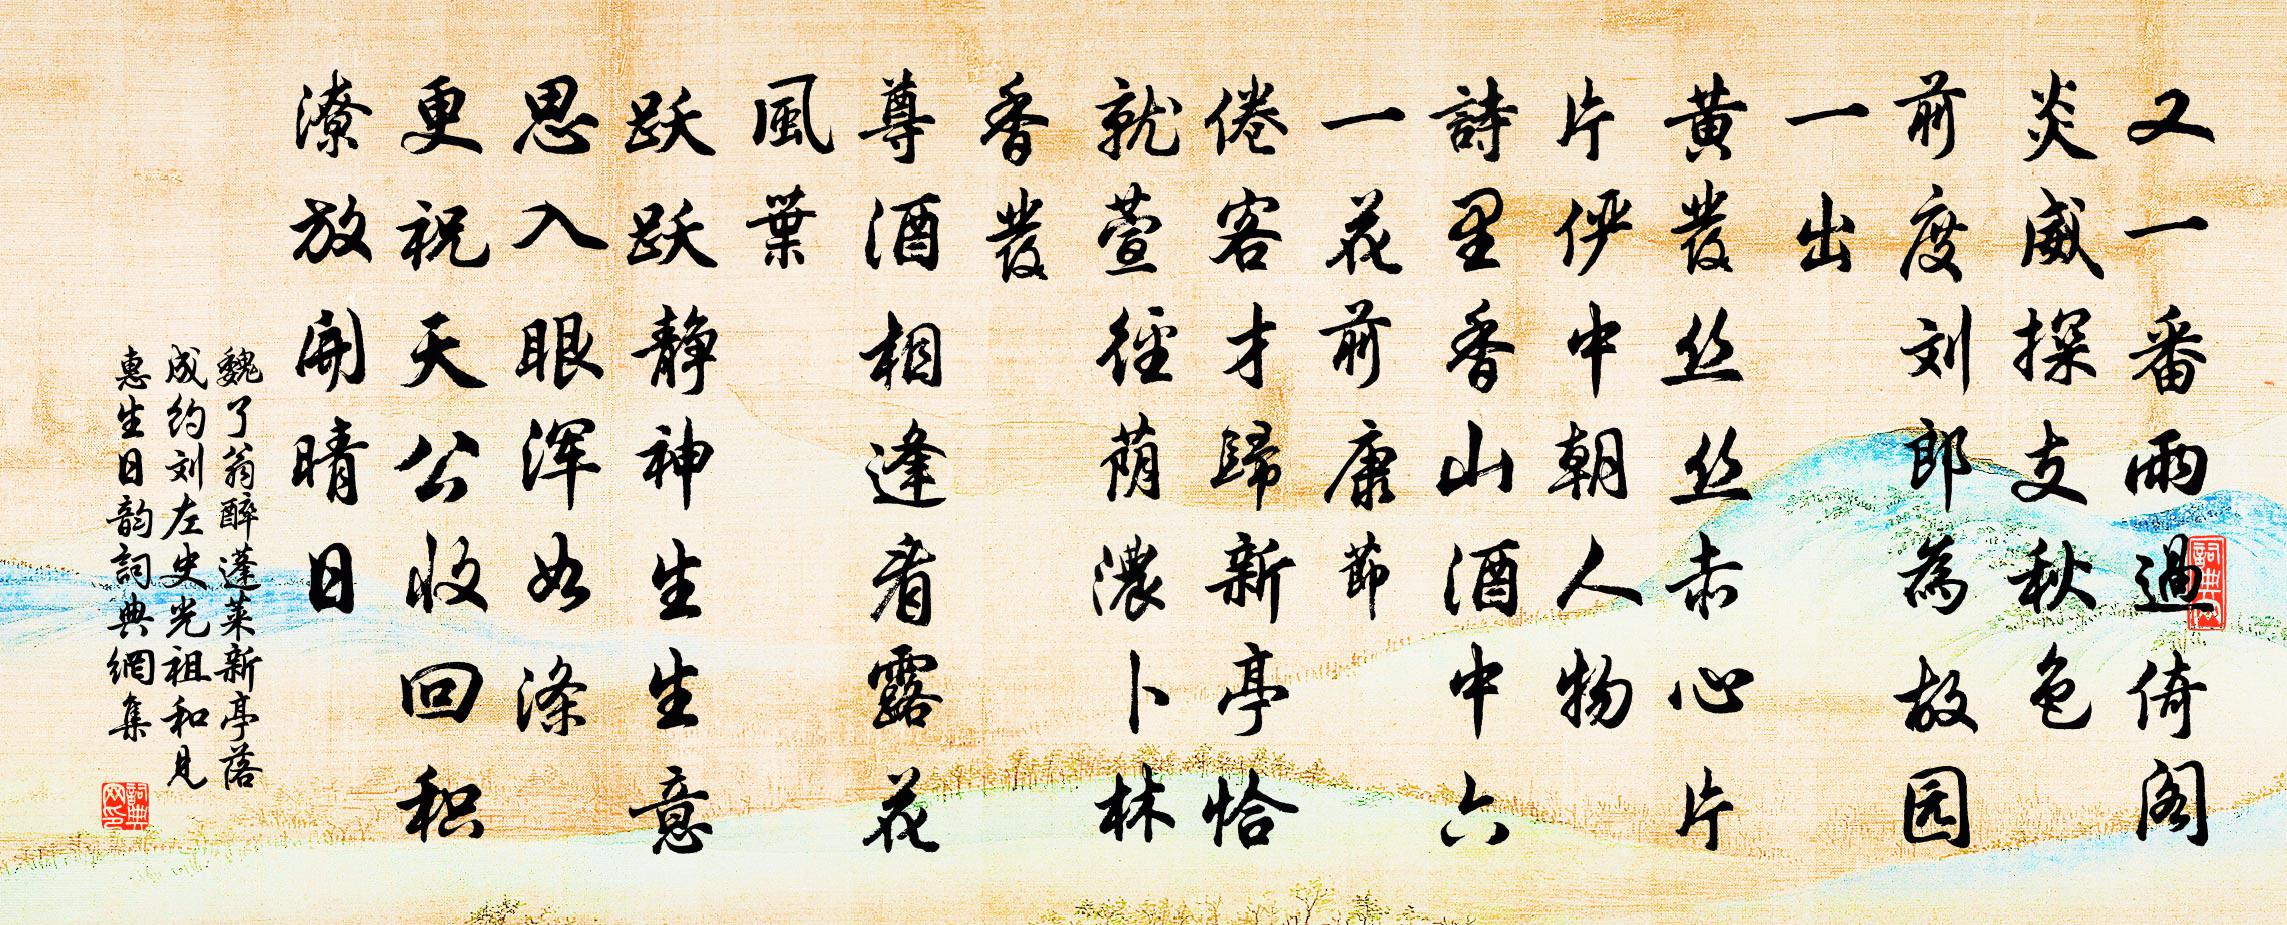 又一番雨過倚阁
炎威探支秋色
前度刘郎為故园
一出
黄发丝丝赤心片
片俨中朝人物
詩里香山酒中六
一花前康節
倦客才歸新亭恰
就萱径荫濃卜林
香發
尊酒相逢看露花
風葉
跃跃静神生生意
思入眼浑如涤
更祝天公收回积
潦放開晴日
魏了翁醉蓬莱新亭落
成约刘左史光祖和見
惠生日韵詞典網集